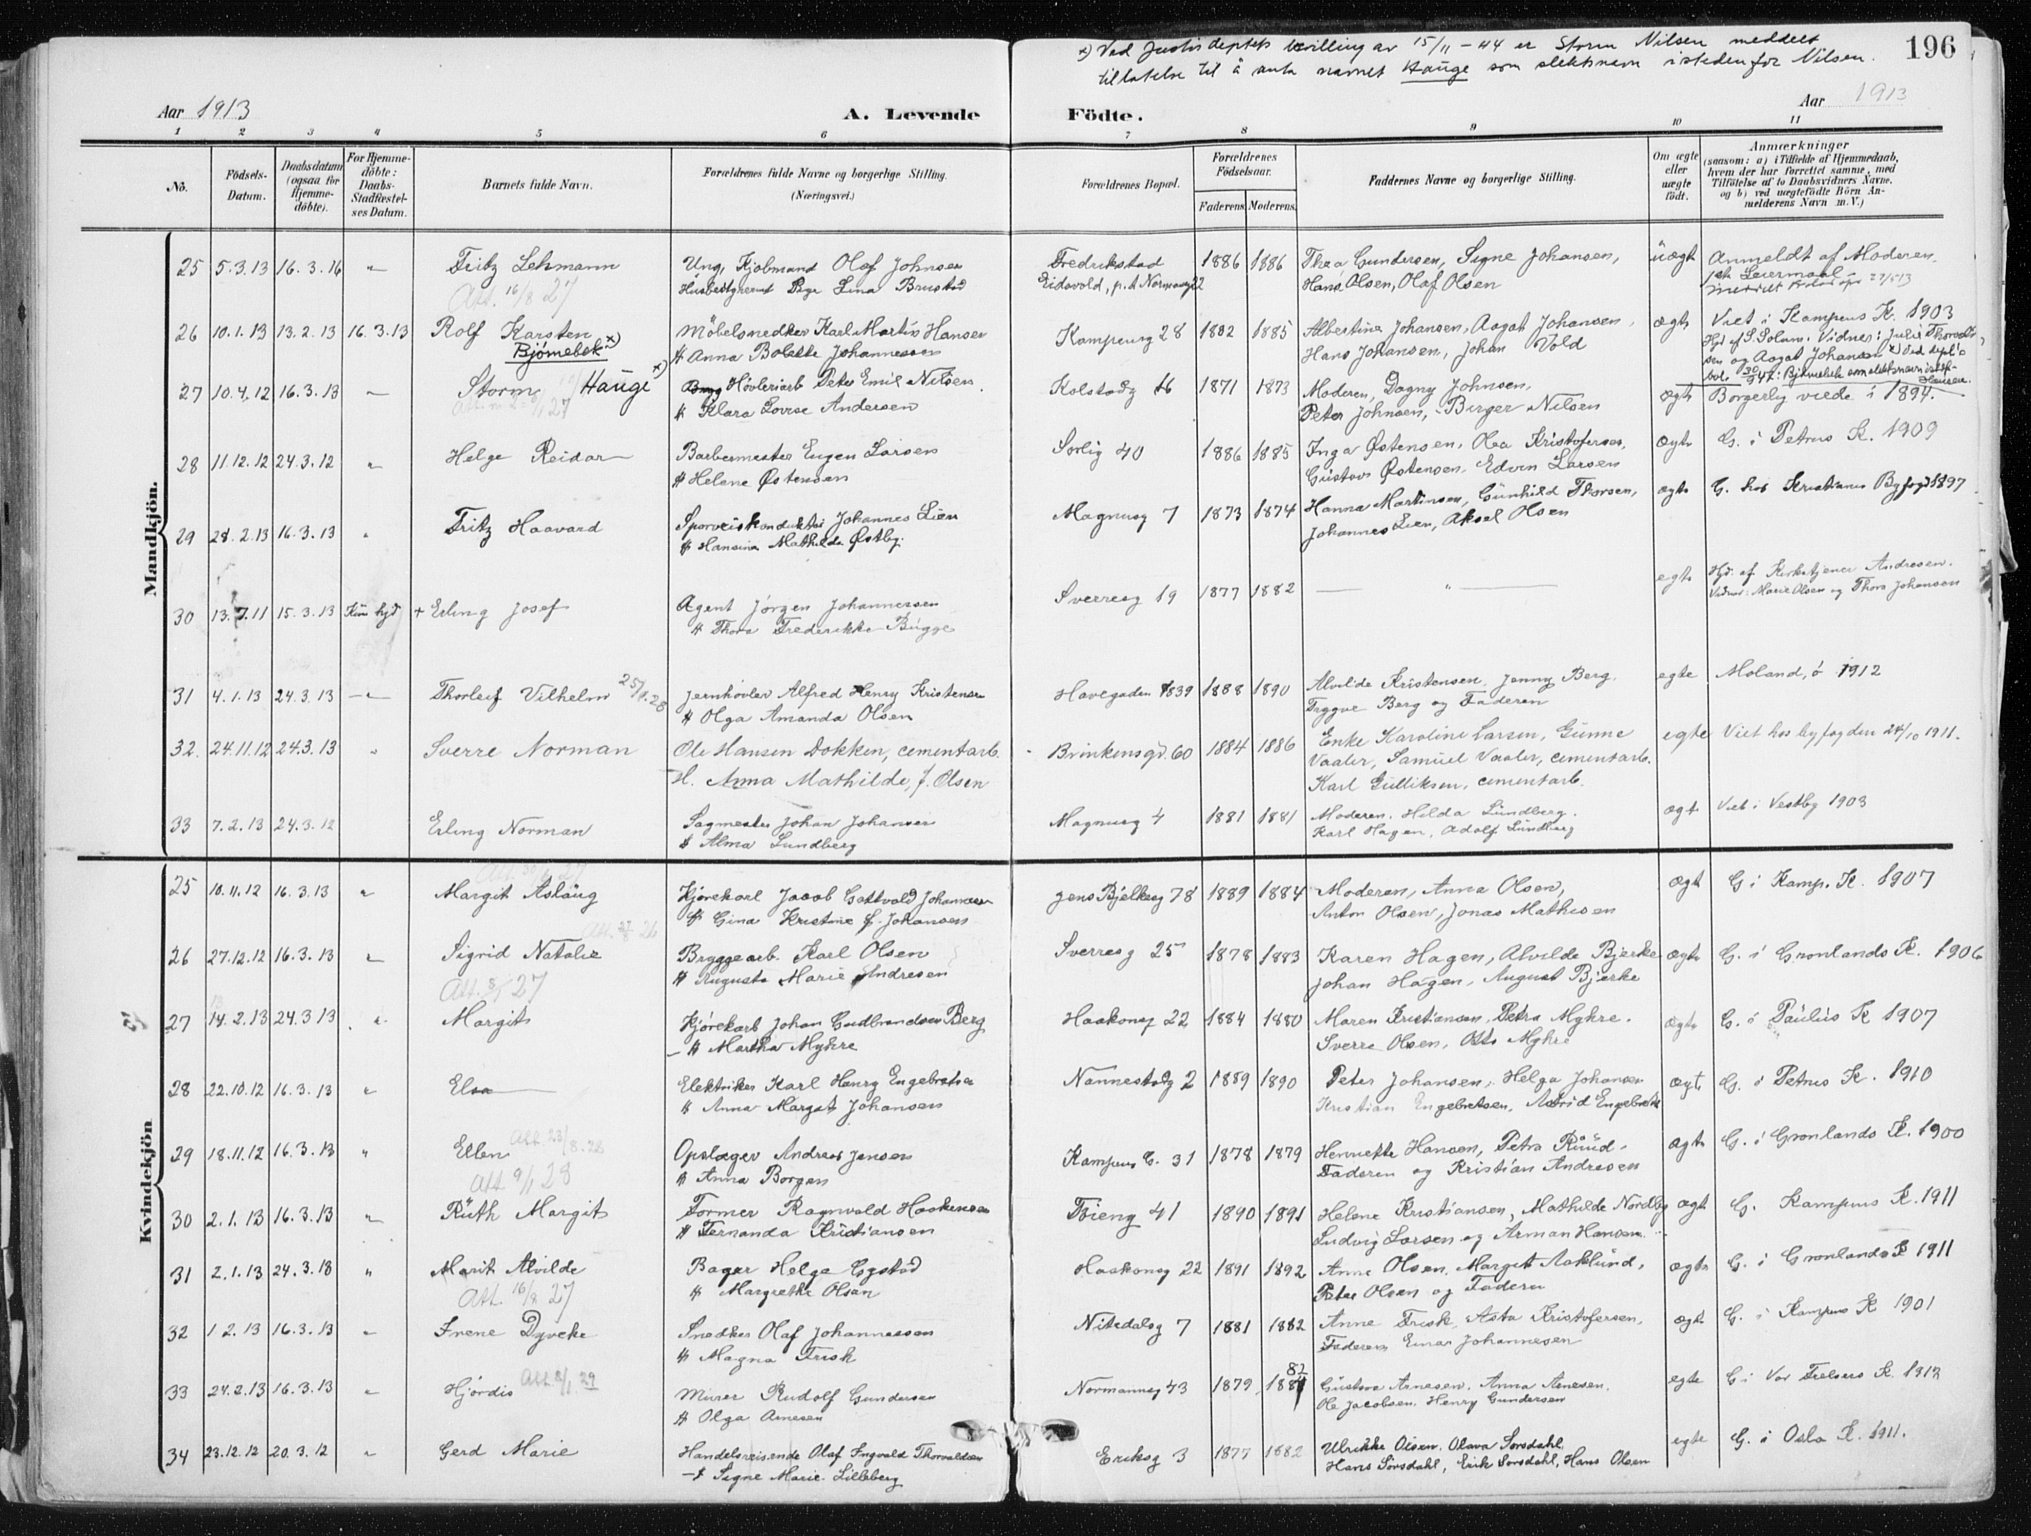 x) Ved Justisdeptets bevilling av 15/11 - 44 er Storm Nilsen meddelt
tillatelse til å anta navnet Hauge som slektsnavn istedenfor Nilsen.
196
Aar 1913 A. Levende Födte. Aar 1913
1 2 3 4 5 6 7 8 9 10 11
No.
Födsels-
Datum.
Daabsdatum
(ogsaa for
Hjemme-
döbte).
For Hjemme-
döbte:
Daabs-
Stadfæstel-
ses Datum.
Barnets fulde Navn.
Forældrenes fulde Navne og borgerlige Stilling.
(Næringsvei.)
Forældrenes Bopæl.
Forældrenes
Födselsaar.
Faderens Moderens.
Faddernes Navne og borgerlige Stilling.
Om ægte
eller
uægte
födt.
Anmærkninger
(saasom: a) i Tilfælde af Hjemmedaab,
hvem der har forrettet samme, med
Tilföielse af to Daabsvidners Navne,
og b) ved uegtefödte Börn An-
melderens Navn m. V.)
Mandkjön.
25 5.3.13 16.3.16 " Fritz Lehmann Ung, Kjøbmand Olaf Johnsen Fredrikstad 1886 1886 Thea Gundersen, Signe Johansen, uægt Anmeldt af Moderen.
Att. 16/8 27 Pige Lina Brustad Eidsvold, p.t. Normannsg 22 Hans Olsen, Olaf Olsen
26 10.1.13 13.2.13 16.3.13 Rolf Karsten Möbelsnedker Karl Martin Hansen Kampensg 28 1882 1885 Albertine Johansen, Aagot Johansen, ægte Viet i Kampens K. 1903
Bjørnebek x) H Anna Bolette Johannessen Hans Johansen, Johan Vold Hjd af S. Solum. Vidner: Julie Thorvald-
sen og Aagot Johansen
27 10.4.12 16.3.13 — Storm Hauge x) Høvleriarb Peter Emil Nilsen. Kolstadg 16 1871 1873 Moderen, Dagny Johnsen, ægte Borgerlig viede i 1894.
H Klara Lovise Andersen Peter Johnsen, Birger Nilsen
28 11.12.12 24.3.12 " Helge Reidar Barbermester Eugen Larsen Sørlig 40 1886 1885 Inga Østensen, Olea Kristofersen, ægte G. i Petrus K. 1909
H Helene Østensen Gustav Østensen, Edvin Larsen
29 28.2.13 16.3.13 " Fritz Haavard Sporveiskonduktør Johannes Lien Magnusg 7 1873 1874 Hanna Martinsen, Gunhild Thorsen, ægte G. hos Kristiania Byfogd 1897
H Hansine Mathilde Østby. Johannes Lien, Aksel Olsen
30 13.7.11 15.3.13 Kun hjd + Erling Josef Agent Jørgen Johannessen Sverresg 19 1877 1882 — " — egte Hjd. af Kirketjener Andresen.
H Thora Frederikke Bugge Vidner: Marie Olsen og Thora Johansen
31 4.1.13 24.3.13 — " Thorleif Vilhelm Jernhøvler Alfred Henry Kristensen Havegaden 1839 1888 1890 Alvilde Kristensen, Jenny Berg, egte Moland, ö 1912
H Olga Amanda Olsen Tryggve Berg og Faderen
32. 24.11.12 24.3.13 " Sverre Norman Ole Hansen Dokken, cementarb. Brinkensgd. 60 1884 1886 Enke Karoline Larsen, Gunne egte Viet hos byfogden 24/10 1911.
H. Anna Mathilde, f. Olsen Vaaler, Samuel Vaaler, cementarb.
Karl Gulliksen, cementarb.
33 7.2.13 24.3.12 Erling Norman Sagmester Johan Johansen Magnusg 4 1881 1881 Moderen. Hilda Lundberg. ægt Viet i Vestby 1903
H Alma Lundberg Karl Hagen, Adolf Lundberg
Kvindekjön
25 10.11.12 16.3.13 " Margit Aslaug Kjørekarl Jacob Gottvald Johannesen Jens Bjelkesg 78 1889 1884 Moderen, Anna Olsen, ægt G i Kamp. K. 1907
H Gina Kristine f. Johansen Anton Olsen, Jonas Mathisen
26 27.12.12 16.3.13 " Sigrid Natalie Bryggearb. Karl Olsen Sverresg 25 1878 1883 Karen Hagen, Alvilde Bjerke ægte G. i Grønlands K. 1906
H Augusta Marie Andresen Johan Hagen, August Bjerke
27 14.2.13 24.3.13 " Margit Kjørekarl Johan Gudbrandsen Berg Haakonsg 22 1884 1880 Maren Kristiansen, Petra Myhre. ægte G. i Paulus K 1907
H Martha Myhre Sverre Olsen, Otto Myhre
28 22.10.12 16.3.13 " Elsa Elektriker Karl Henry Engebretsen Nannestadg 2 1889 1890 Peter Johansen, Helga Johansen ægt G. i Petrus K. 1910
H Anna Margot Johansen Kristian Engebretsen, Astrid Engebretsen
29 18.11.12 16.3.13 " Ellen Opslager Andreas Jensen Kampens G. 31 1878 1879 Henriette Hansen, Petra Ruud. ægte G. i Grønlands K. 1900
Att 9/1 28 H Anna Borgen Faderen og Kristian Andresen
30 2.1.13 16.3.13 " Ruth Margit Former Ragnvald Haakensen 41 1890 1891 Helene Kristiansen, Mathilde Nordby ægt G. Kampens K. 1911
H Fernanda Kristiansen Ludvig Larsen og Arman Hansen
31 2.1.13 24.3.13 " Marit Alvilde Bager Helge Ogstad Haakonsg 22 1891 1892 Anna Olsen, Margit Asklund, ægte G. i Grønlands K 1911
Att. 16/8 27 H Margrethe Olsen Peter Olsen og Faderen
32 1 2.13 16.3.13 " Irene Dyveke Snedker Olaf Johannessen Nitedalsg 7 1881 1882 Anne Frisk, Asta Kristofersen, ægt G. i Kampens K 1901
H Magna Frisk Faderen Einar Johannesen
33 24.2.13 16.3.13 " Hjördis Att. 2/1 29 Murer Rudolf Gundersen Normannsg 43 1879 82 Gustava Arnesen. Anna Arnesen. egte G i Vor Frelsers K. 1912
H Olga Arnesen Ole Jacobsen. Henry Gundersen
34 23.12.12 20.3.12 " Gerd Marie Handelsreisende Olaf Ingvald Thorvaldsen Eriksg 3 1877 1882 Ulrikke Olsen. Olava Sørsdahl. egte G. i Oslo K. 1911.
H Signe Marie Lilleberg Hans Sørsdahl, Erik Sørsdahl, Hans Olsen